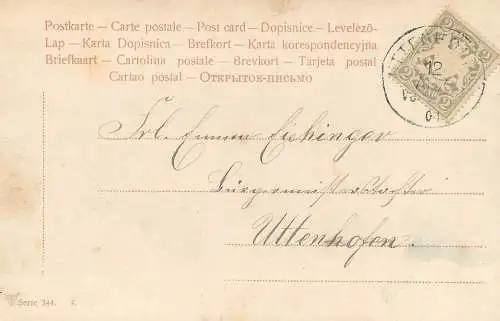 Postkarte — Carte postale — Post card — Dopisnice — Levelező-
Lap — Karta Dopisnica — Brefkort — Karta korespondencyjna
Briefkaart — Cartolina postale — Brevkort — Tarjeta postal
Cartao postal — Открытое-письмо
2 2
12
04
Frl. Emma Eichinger
Bürgermeisterstochter
Uttenhofen.
Serie 344.